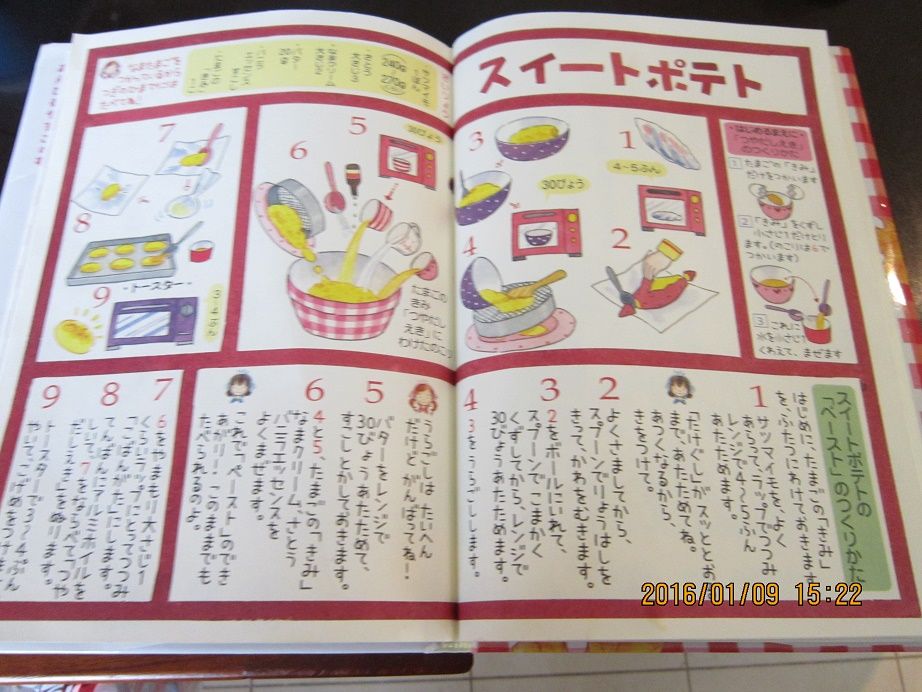 スイートポテト
・はじめるまえに・
「つやだしえき」
のつくりかた
1 たまごの「きみ」
だけをつかいます
2 「きみ」をくずし
小さじ1だけとり
ます。(のこりは6で
つかいます)
3 これに
水を小さじ1
くわえて、まぜます
1
4〜5ふん
2
3
30びょう
4
5
30びょう
6
たまごの
きみ
「つやだし
えき」に
わけたのこり
7
8
・トースター・
9
3〜4ぷん
なまたまごを
つかっているから
つぎのひまでには
たべてね!
サツマイモ
240g
270g
バター
30g
スイートポテトの
「ペースト」のつくりかた
はじめに、たまごの「きみ」
を、ふたつにわけておきます。
1
サツマイモを、よく
あらって、ラップでつつみ
レンジで4〜5ふん
あたためます。
「たけぐし」がスッととおる
まで、あたためてね。
あつくなるから、
きをつけて。
2
よくさましてから、
スプーンでりょうはしを
きって、かわをむきます。
3
2をボールにいれて、
スプーンでこまかく
くずしてから、レンジで
30びょうあたためます。
4
3をうらごしします。
うらごしは、たいへん
だけど、がんばってね!
5
バターをレンジで
30びょうあたためて、
すこしとかしておきます。
6
4と5、たまごの「きみ」
なまクリーム、さとう
バニラエッセンスを
よくまぜます。
これで「ペースト」のでき
あがりー!このままでも
たべられるのよ。
7
6をやまもり大さじ1
くらいラップにとってつつみ
「こばんがた」にします。
8
てんばんにアルミホイルを
しいて、7をならべて「つや
だしえき」をぬります。
9
トースターで3〜4ぷん
やいて、こげめをつけます
2016/01/09 15:22